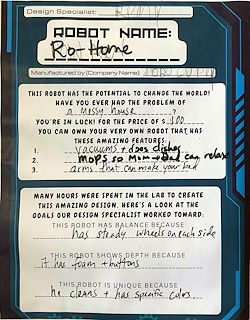 Design Specialist:
ROBOT NAME:
Ro-Home
Manufactured by (Company Name):
THIS ROBOT HAS THE POTENTIAL TO CHANGE THE WORLD!
HAVE YOU EVER HAD THE PROBLEM OF
a messy house ?
YOU'RE IN LUCK! FOR THE PRICE OF $ 100
YOU CAN OWN YOUR VERY OWN ROBOT THAT HAS
THESE AMAZING FEATURES:
1. vacuums + does dishes
2. mops so mom + dad can relax
3. arms that can make your bed
MANY HOURS WERE SPENT IN THE LAB TO CREATE
THIS AMAZING DESIGN. HERE'S A LOOK AT THE
GOALS OUR DESIGN SPECIALIST WORKED TOWARD:
THIS ROBOT HAS BALANCE BECAUSE
has steady wheels on each side
THIS ROBOT SHOWS DEPTH BECAUSE
it has foam + buttons
THIS ROBOT IS UNIQUE BECAUSE
he cleans + has specific colors